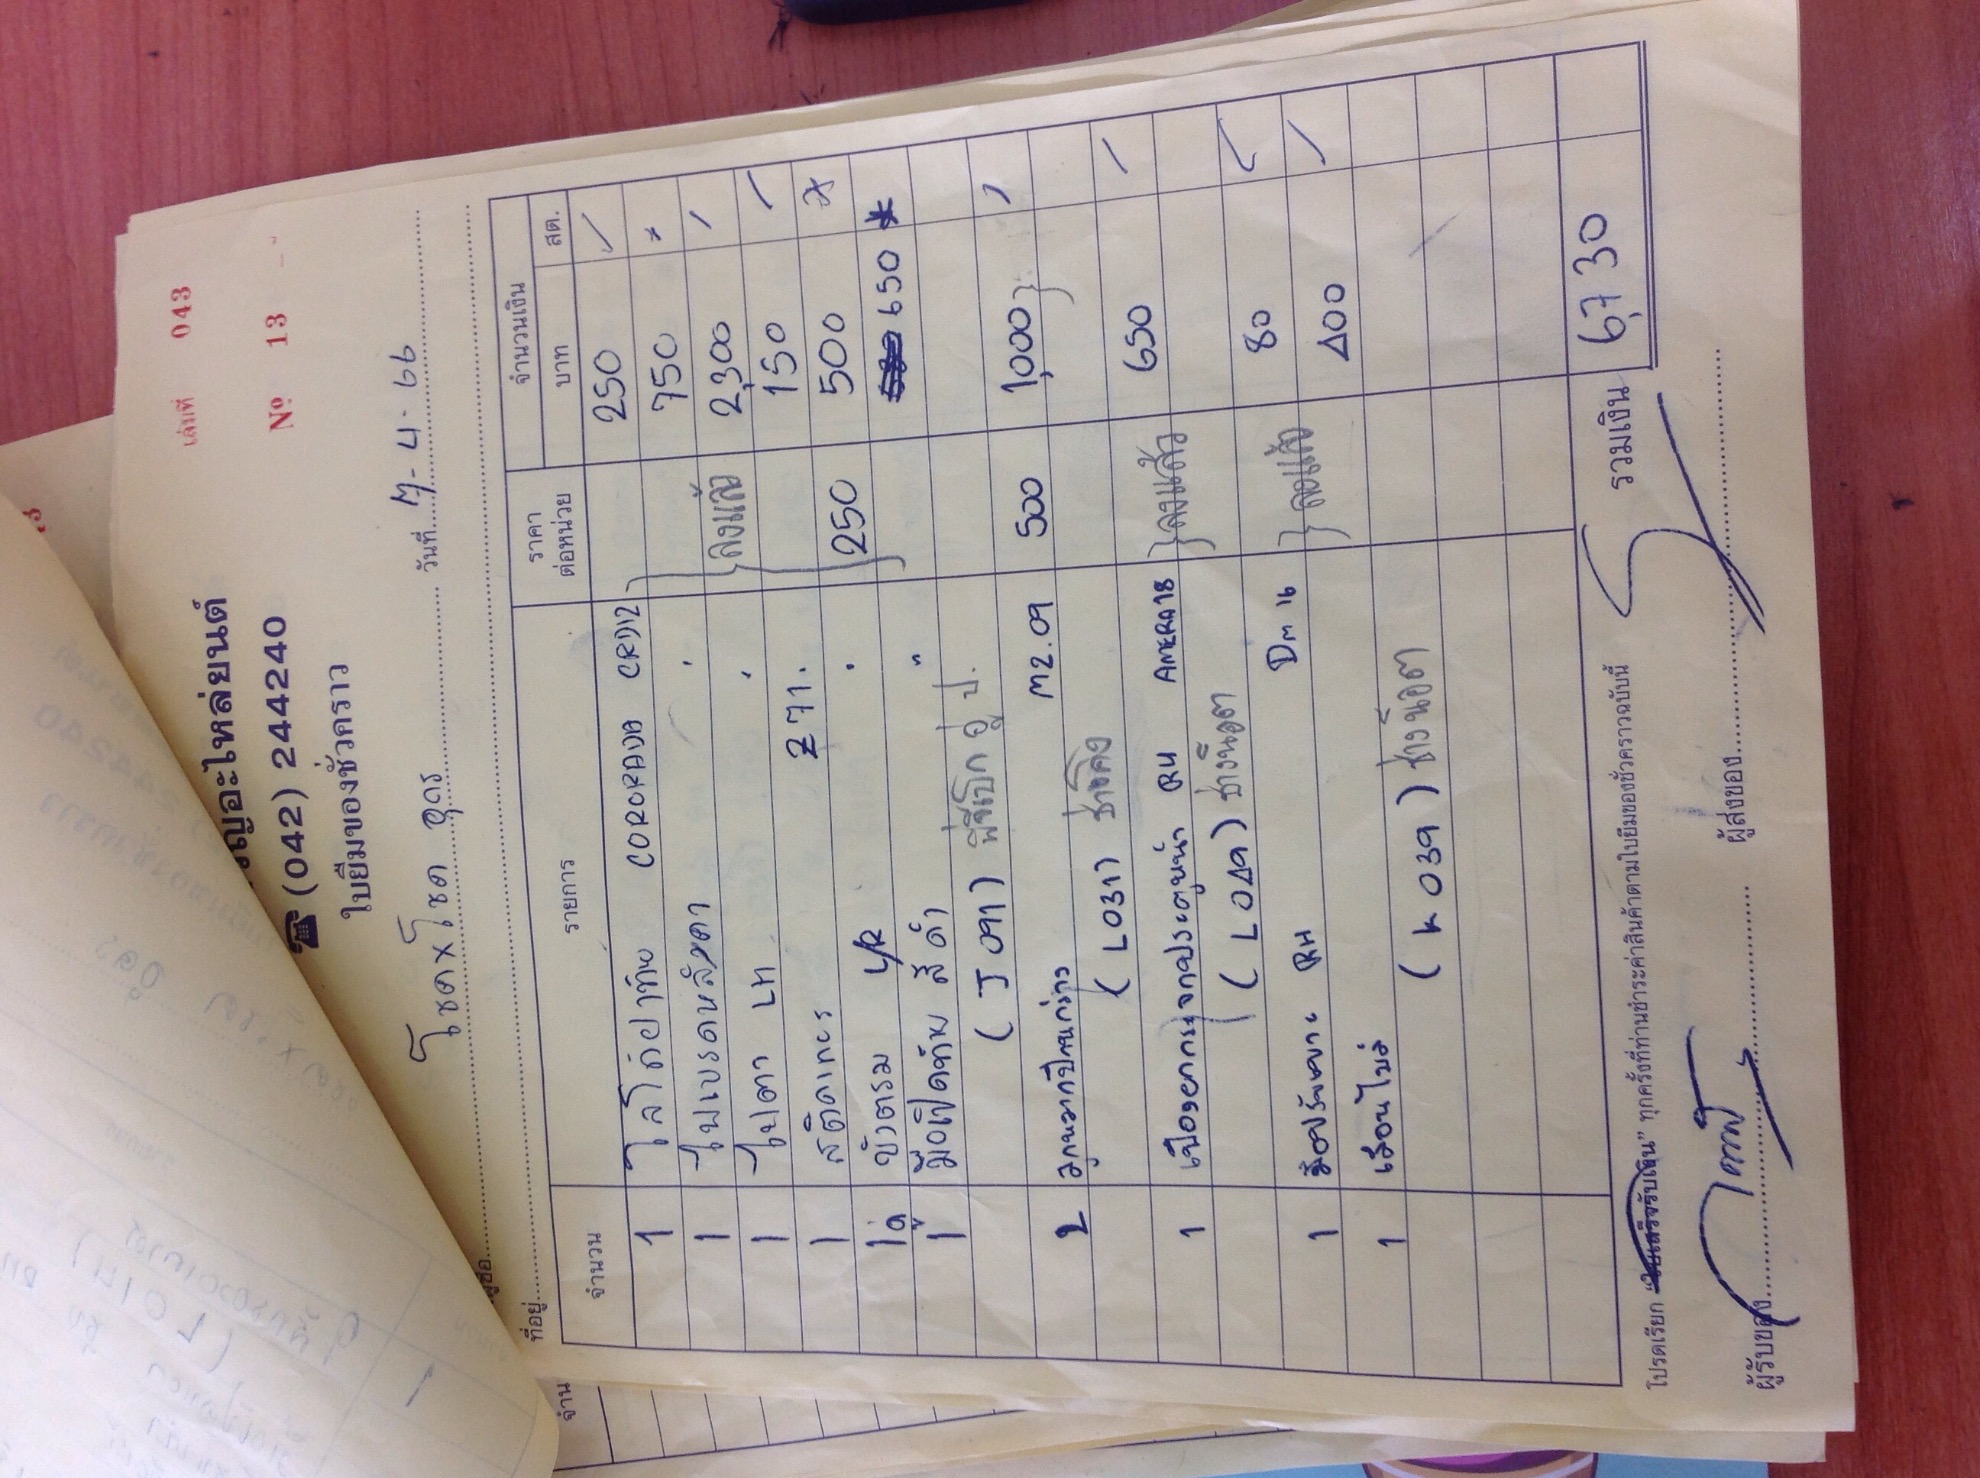 เล่มที่ 043
ญอะไหล่ยนต์
☎ (042) 244240
Nº 13
ใบยืมของชั่วคราว
โชค x โชค อุดร วันที่ 7-4-66
ที่อยู่
จำนวน รายการ ราคาต่อหน่วย จำนวนเงิน
บาท สต.
1 โลโก้ฝาท้าย CORORADA CRD12 250 /
1 ไฟเบรคหลังคา ' 750 x
1 ไฟตา LH ' 2,300 /
1 สติดเกอร Z71. 150 /
1คู่ คิ้วตรม L/R . 250 500 x
1 มือเปิดท้าย สีดำ " 650 *
ลงแล้ว
(J071) พี่ซีเบิก อู่ ป.
2 ลูกหมากปีกนกล่าง M2.09 500 1,000
(L031) ช่างโค้ง
1 เฟืองยกกระจกประตูหน้า RH AMERA18 650 /
ลงแล้ว
(L049) ช่างน็อต
1 มือปรับเบาะ RH Dm 16 80
1 เรือนไมล์ 400 /
ลงแล้ว
(K039) ช่างน็อต
รวมเงิน 6,730
โปรดเรียก “ใบเสร็จรับเงิน” ทุกครั้งที่ท่านชำระค่าสินค้าตามใบยืมของชั่วคราวฉบับนี้
ผู้รับของ ผู้ส่งของ